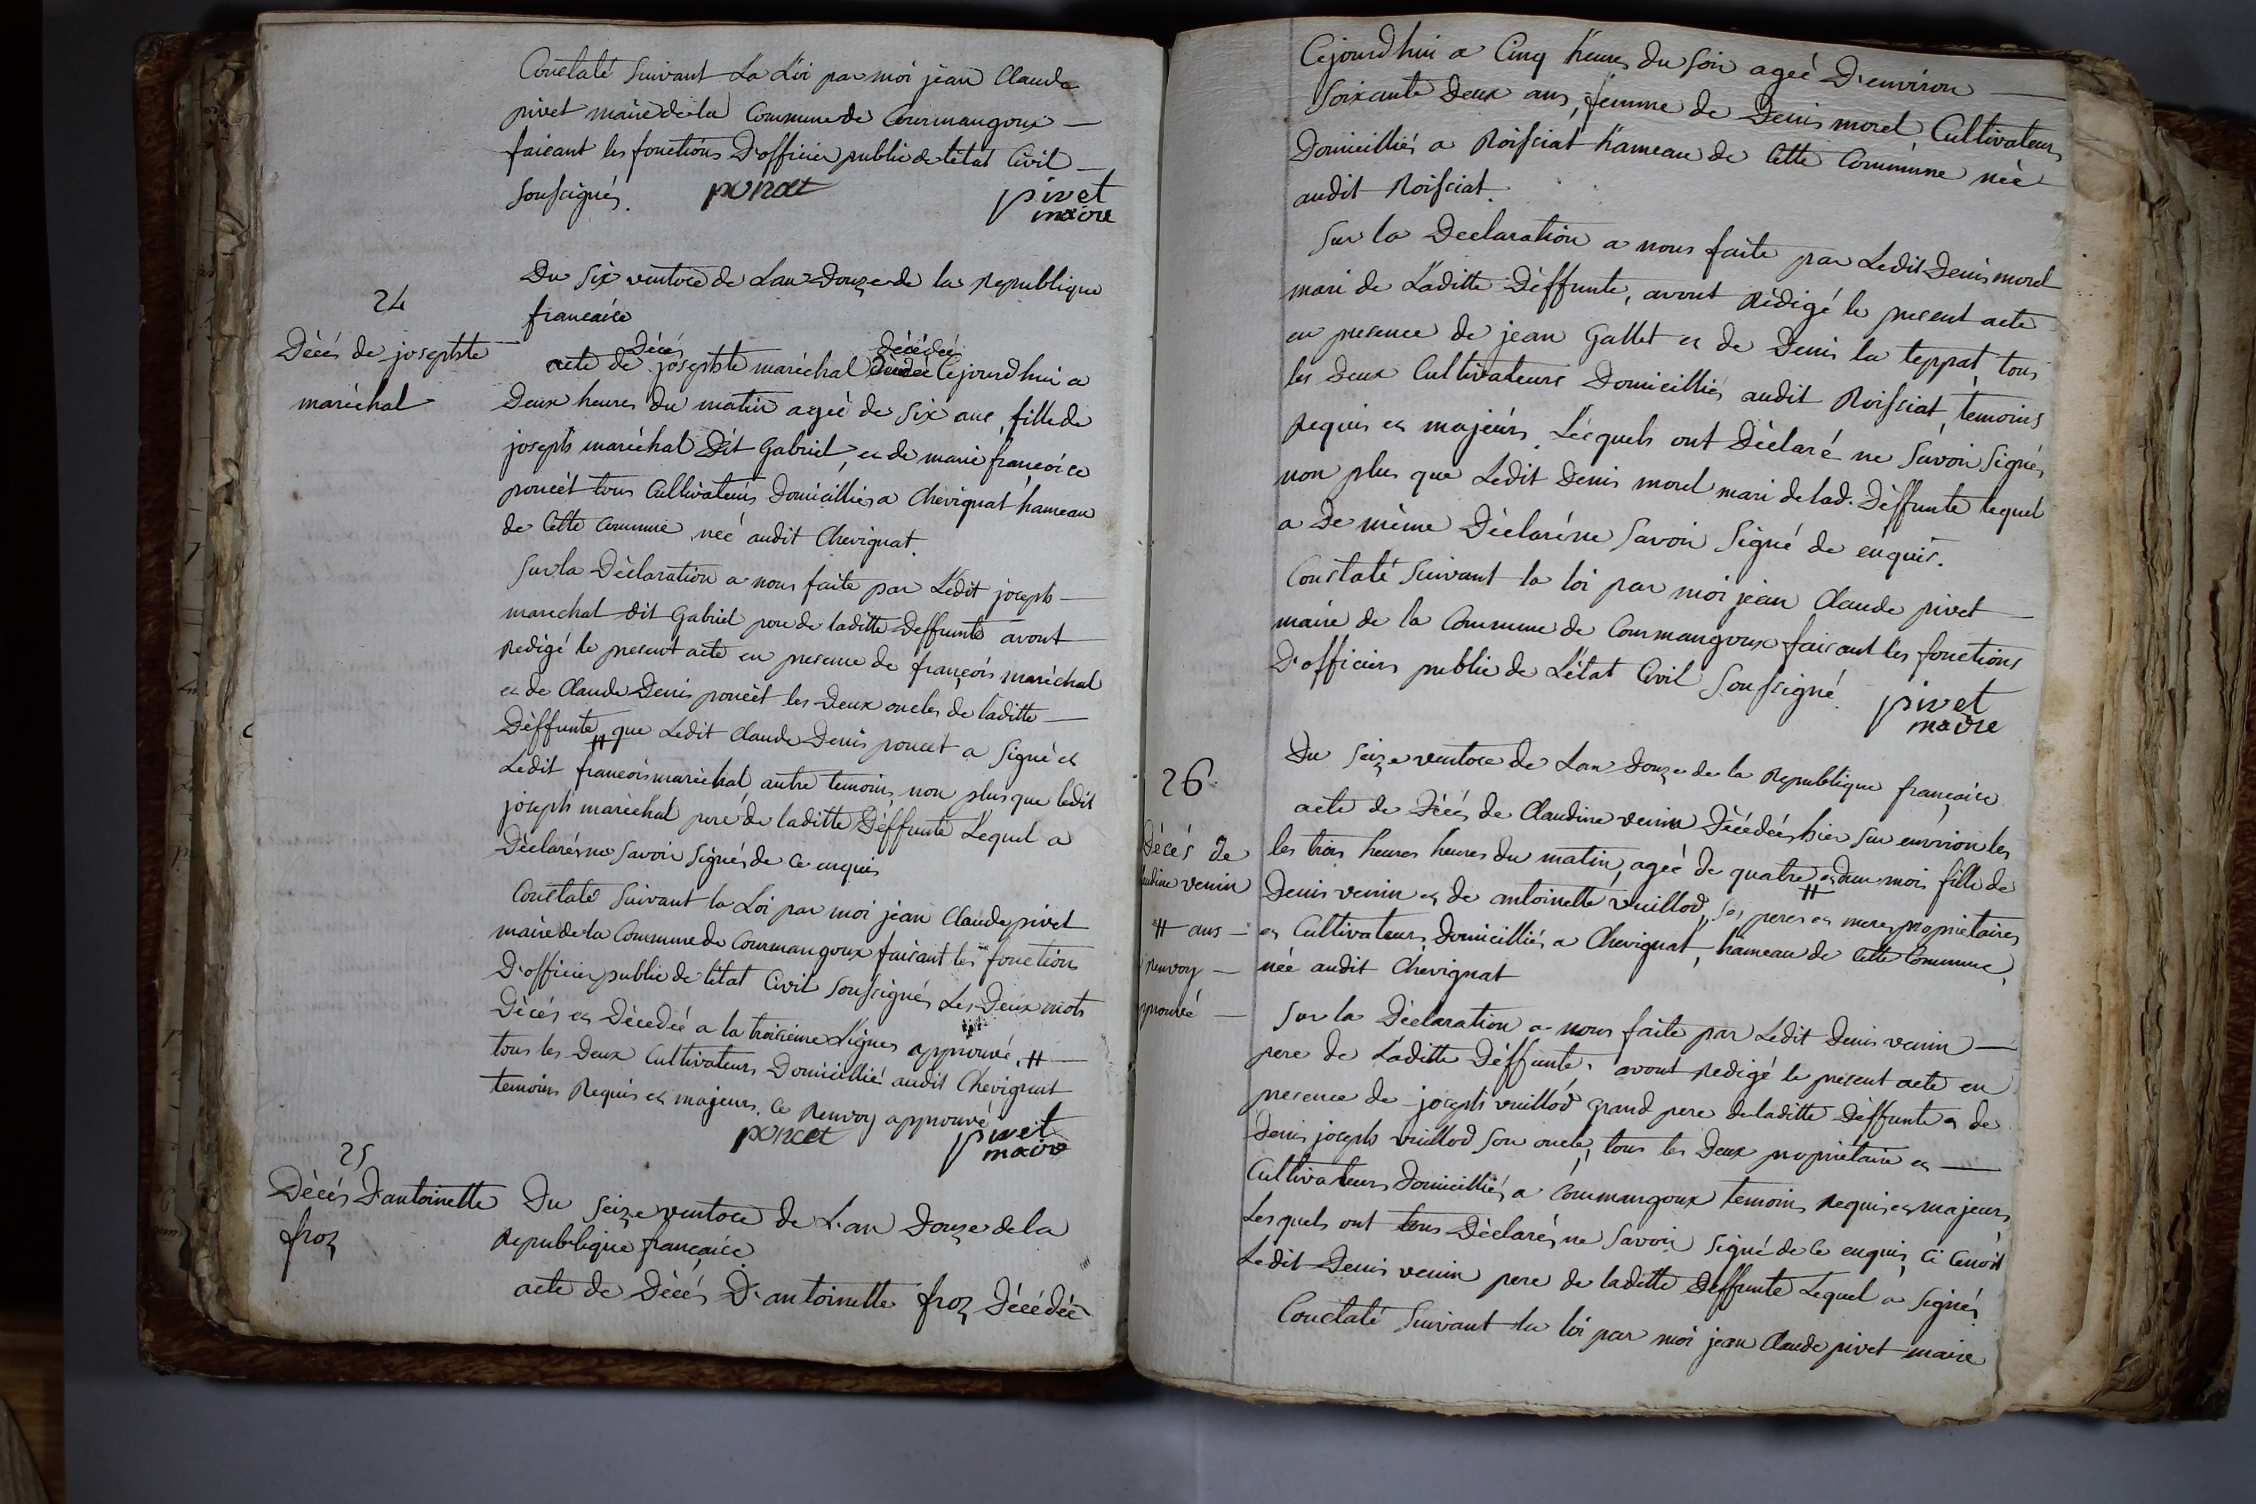 Constaté Suivant La Loi par moi jean Claude
pivet maire de la Commune de Courmangoux
faisant les fonctions D'officier public de l'état Civil
Soussigné. poncet pivet
maire
Du six ventose de L'an Douze de la Republique
francaice
24
Décés de josephte
maréchal
Décés décédée
acte de josephte maréchal Cejourd'hui a
Deux heures du matin ageé de six ans, fille de
joseph maréchal Dit Gabriel, et de marie françoice
poncèt tous Cultivateurs Domicilliés a Chevignat hameau
de Cette Commune, neé audit Chevignat.
Sur la Dèclaration a nous faite par Ledit joseph
marechal dit Gabriel pere de laditte Deffunte avont
Redigé le present acte en presence de françois maréchal
et de Claude Denis poncèt les Deux oncles de laditte
Dèffunte, # que Ledit Claude Denis poncet a Signé et
Ledit francois maréchal autre temoin, non plus que ledit
joseph maréchal pere de laditte Dèffunte Lequel a
Dèclarés ne Savoir Signés de Ce enquis
Constaté Suivant la Loi par moi jean Claude pivet
maire de la Commune de Courmangoux faisant les fonction
D'officier public de l'état Civil Soussignés Les Deux mots
Dècés et Dècedèé a la troisieme Lignes approuvé, #
tous les Deux Cultivateurs Domicillié audit Chevignat
temoins Requis et majeurs, Ce Renvoy approuvé
poncet pivet
maire
25
Dècés D'antoinette
froz
Du Seize ventose de L'an Douze de la
Republique françaice
acte de Dècés D'antoinette froz Dècédèé
Cejourd'hui a Cinq heures du Soir ageé D'environ
Soixante Deux ans, femme de Denis morel Cultivateurs
Domicilliés a Roissiat hameau de Cette Commune née
audit Roissiat.
Sur la Declaration a nous faite par Ledit Denis morel
mari de Laditte Dèffunte, avont Rèdigé le present acte
en presence de jean Gallet et de Denis la teppat, tous
les Deux Cultivateurs Domicilliés audit Roissiat, temoins
Requis et majeurs, Lesquels ont Dèclaré ne Savoir Signés,
non plus que Ledit Denis morel mari de lad. Dèffunte lequel
a De même Dèclaré ne Savoir Signé de enquis.
Constaté Suivant la loi par moi jean Claude pivet
maire de la Commune de Courmangoux faisant les fonctions
D'officiers public de L'état Civil Soussigné. pivet
maire
26
Du Seize ventose de L'an Douze de la Republique françaice
Décés de
venin
# ans
Renvoy
acte de Dècés de Claudine venin Dècédeé hier Sur environ les
les trois heures heures du matin, ageé de quatre # et deux mois fille de
Denis venin et de antoinette vuillod, Ses peres et meres propriètaires
et Cultivateurs Domicilliés a Chevignat, hameau de Cette Commune,
née audit Chevignat
Sur la Dèclaration a nous faite par Ledit Denis venin
pere de Laditte Dèffunte, avont Redigé le present acte en
presence de joseph vuillod grand pere de laditte Dèffunte et de
Denis joseph vuillod Son oncle, tous les Deux propriètaire et
Cultivateurs Domicilliés a Courmangoux temoins Requis et majeurs,
Lesquels ont tous Dèclarés ne Savoir Signé de Ce enquis,
Ledit Denis venin pere de laditte Dèffunte Lequel a Signés
Constaté Suivant la loi par moi jean Claude pivet maire